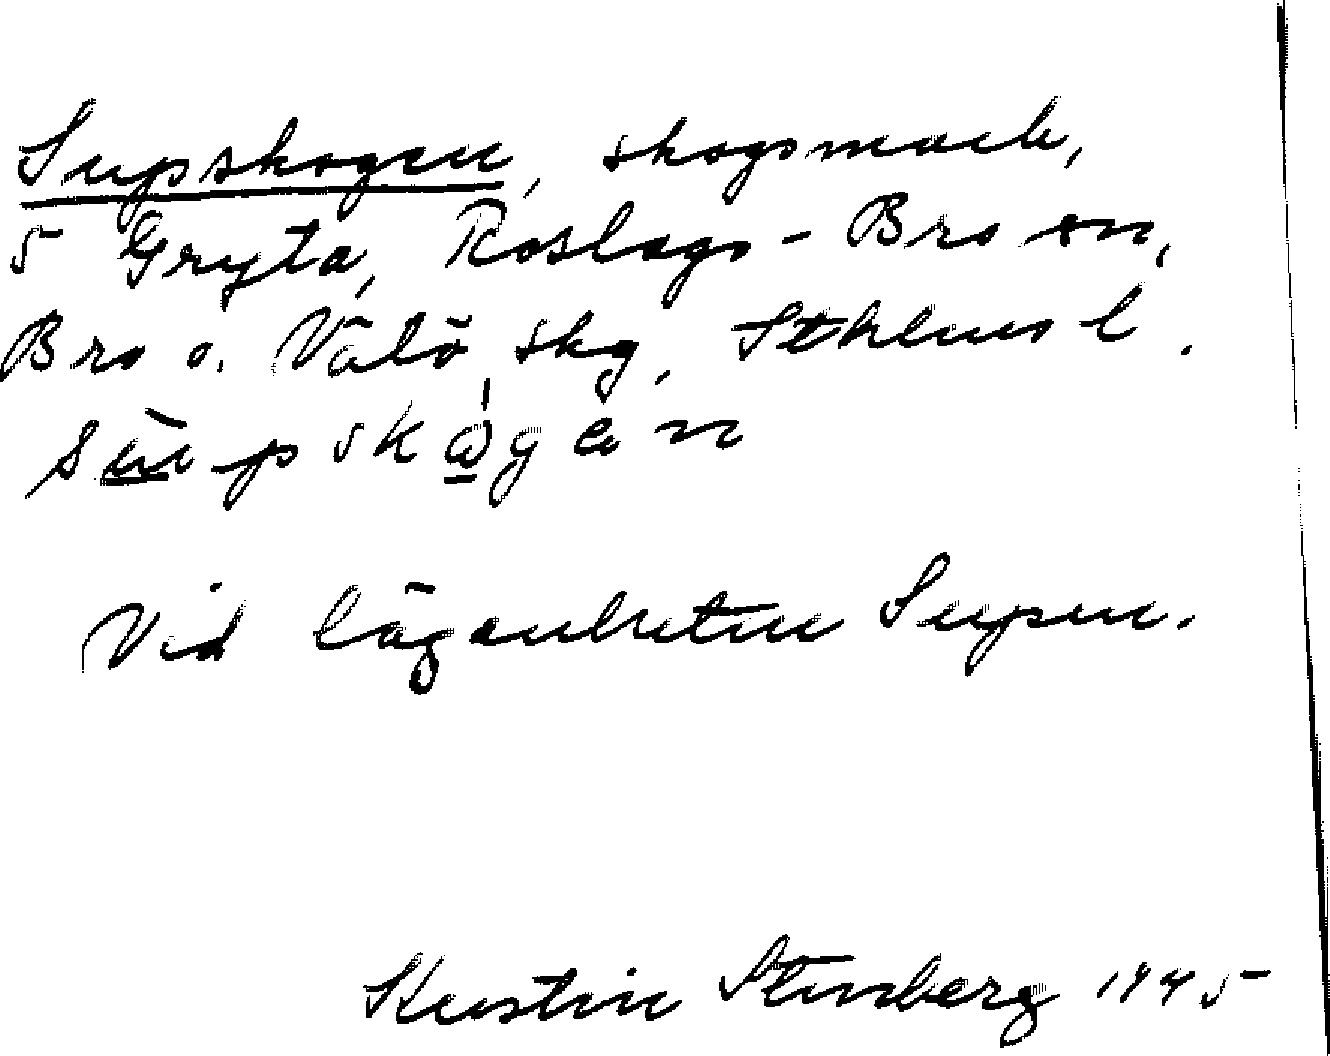 Supskogen, skogsmark,
5 Gryta, Roslags-Bro sn,
Bro o. Vätö skg, Sthlms l.
sup skogen
Vid lägenheten Supen.
Kerstin Stenberg 1945